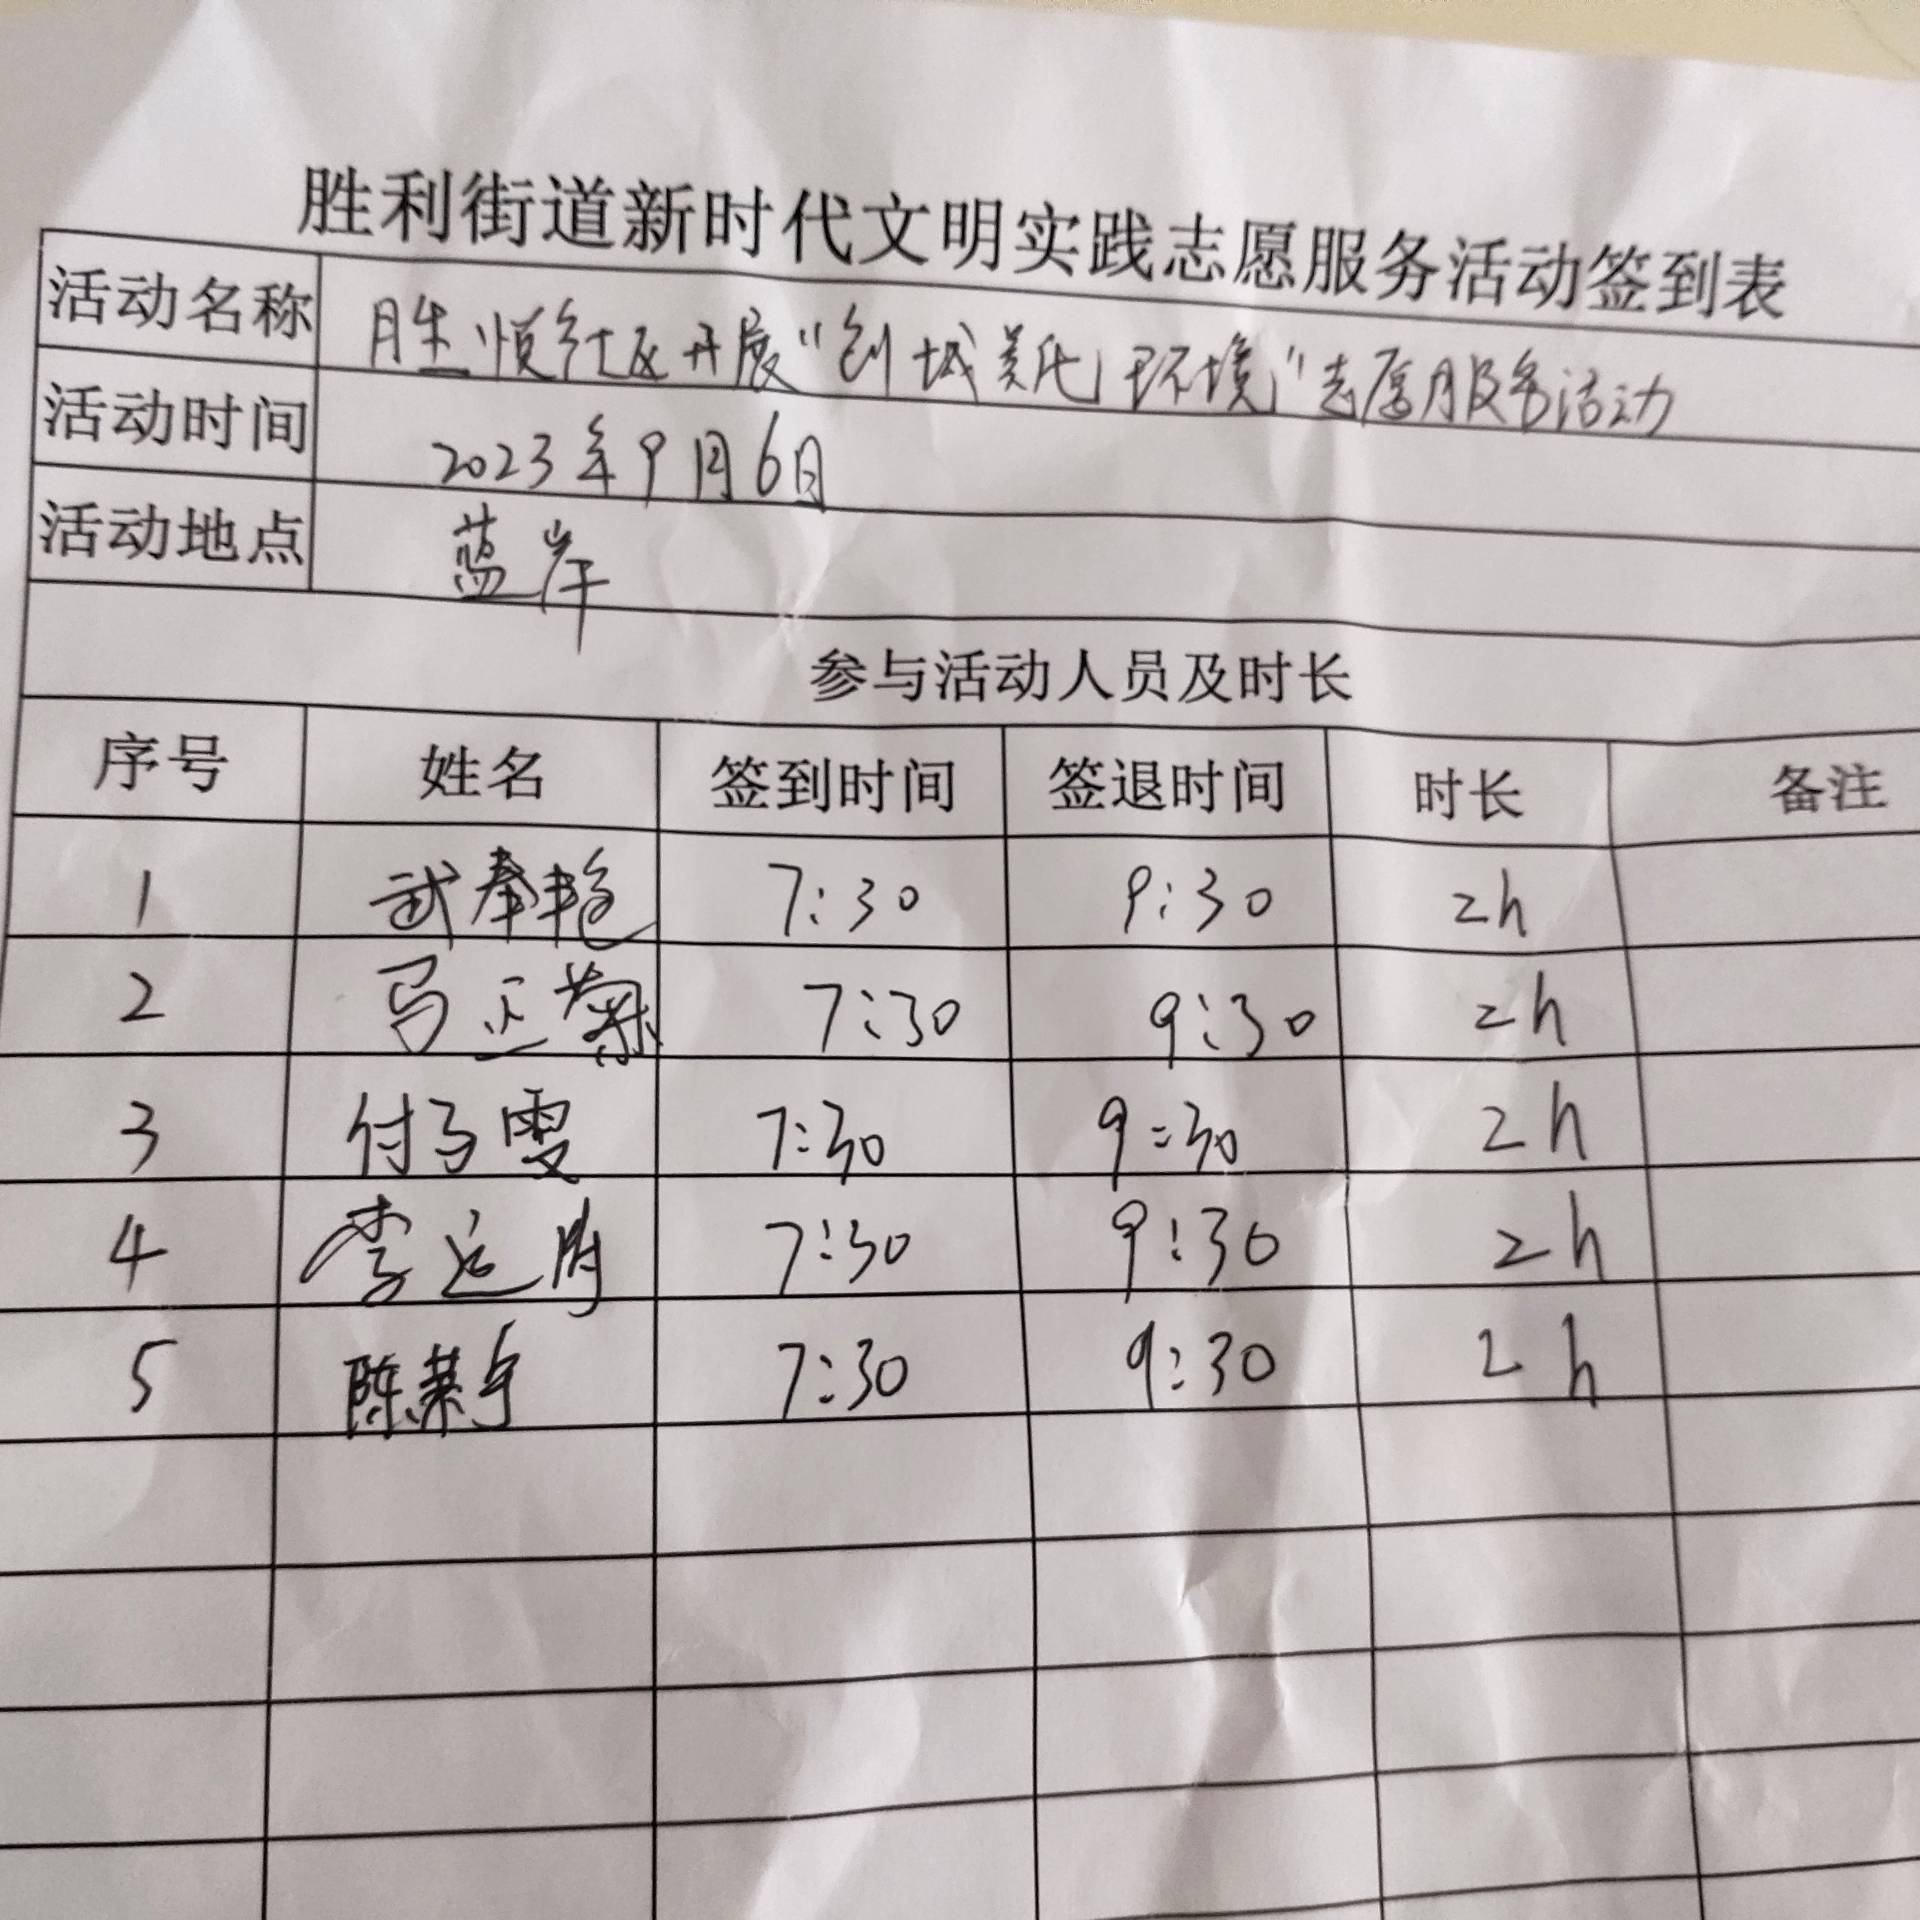 胜利街道新时代文明实践志愿服务活动签到表
活动名称 胜恒社区开展“创城美化环境”志愿服务活动
活动时间 2023年9月6日
活动地点 蓝岸
参与活动人员及时长
序号 姓名 签到时间 签退时间 时长 备注
1 武春艳 7:30 9:30 2h
2 马正菊 7:30 9:30 2h
3 付马雯 7:30 9:30 2h
4 李运 7:30 9:30 2h
5 陈荣宇 7:30 9:30 2h